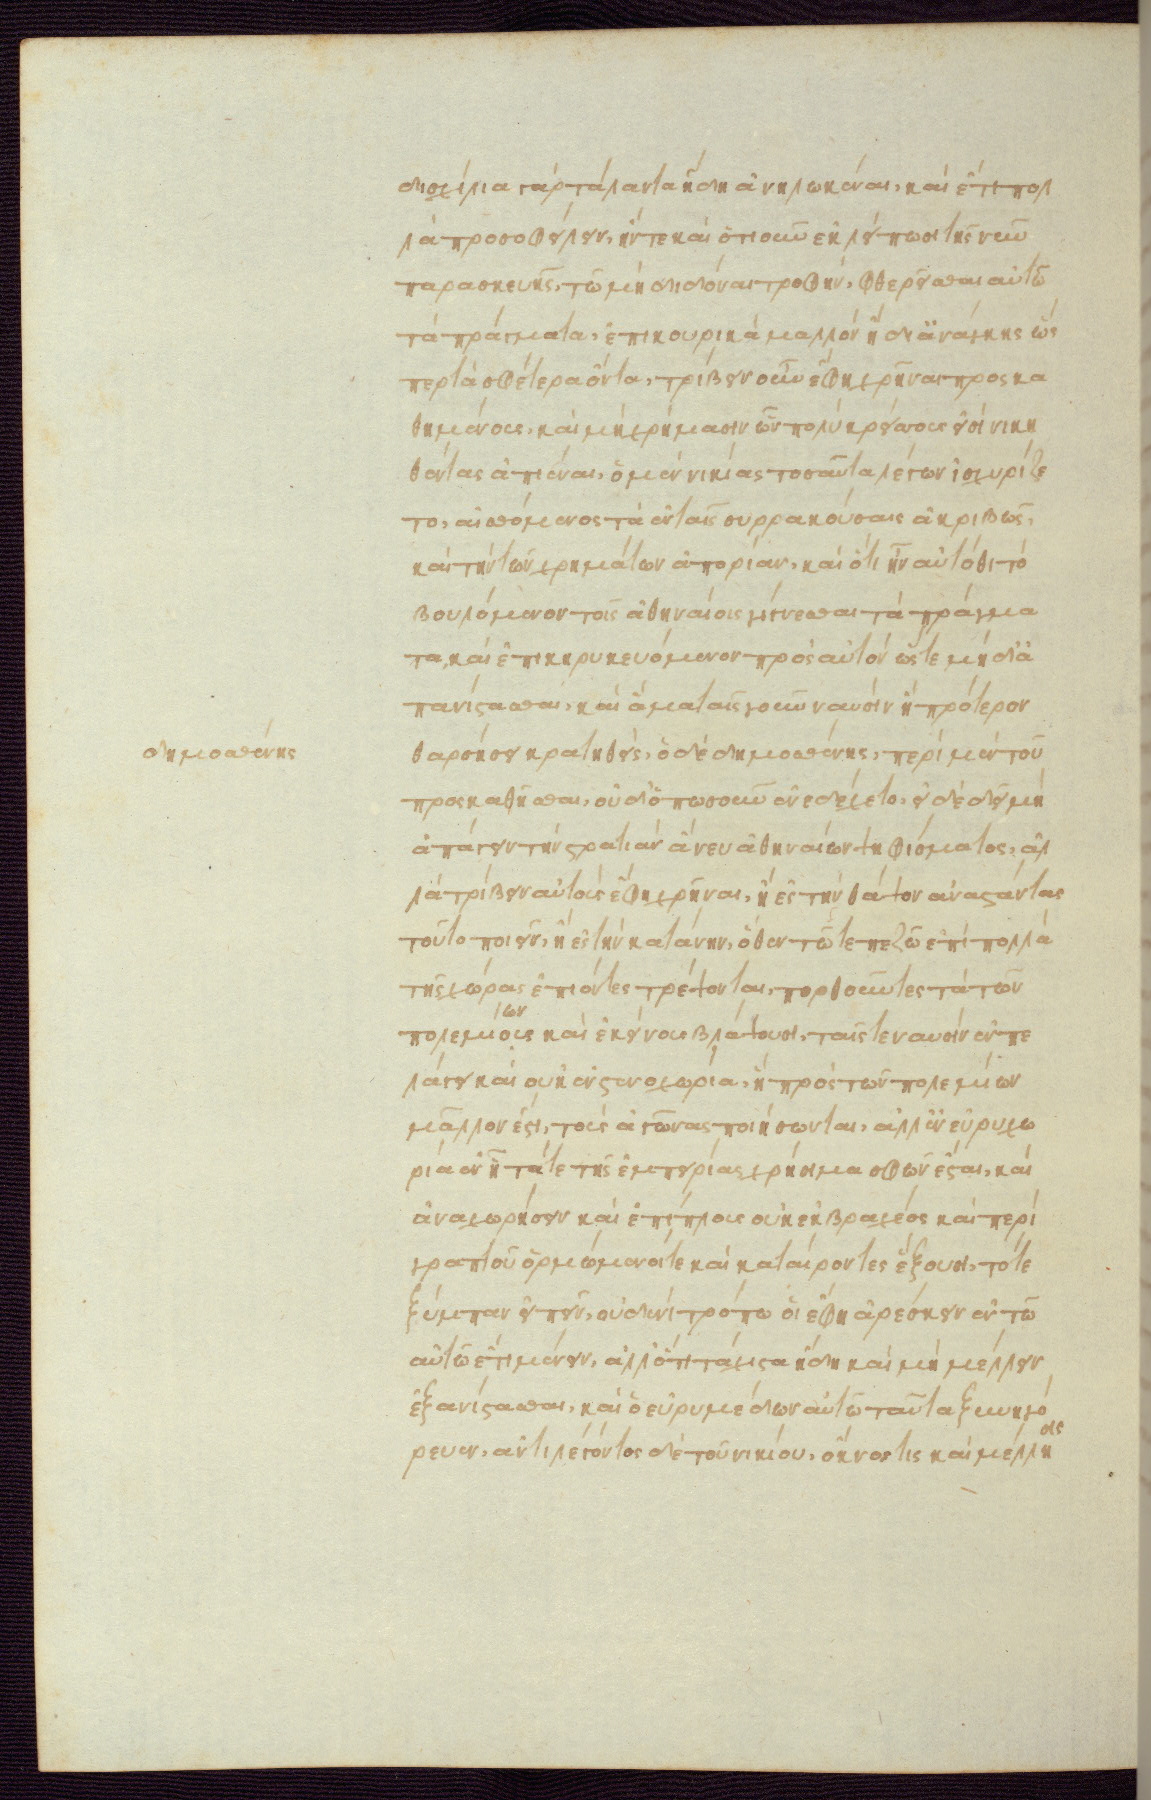 δισχίλια γὰρ τάλαντα ἤδη ἀνηλωκέναι, καὶ ἔτι πολ
λὰ προσοφείλειν, ἤν τε καὶ ὁτιοῦν ἐκλείπωσι τῆς νῦν
παρασκευῆς, τῷ μὴ διδόναι τροφὴν, φθερεῖσθαι αὐτῶν
τὰ πράγματα, ἐπικουρικὰ μᾶλλον ἢ δι' ἀνάγκης ὥς
περ τὰ σφέτερα ὄντα, τρίβειν οὖν ἔφη χρῆναι προςκα
θημένους, καὶ μὴ χρήμασιν ὧν πολὺ κρείσσους εἰσὶ νικη
θέντας ἀπιέναι, ὁ μὲν νικίας τοσαῦτα λέγων ἰσχυρίζε
το, αἰσθόμενος τὰ ἐν ταῖς συρρακούσαις ἀκριβῶς,
καὶ τὴν τῶν χρημάτων ἀπορίαν, καὶ ὅτι ἦν αὐτόθι τὸ
βουλόμενον τοῖς ἀθηναίοις γίγνεσθαι τὰ πράγμα
τα, καὶ ἐπικηρυκευόμενον πρὸς αὐτὸν ὥστε μὴ ἀ
πανίστασθαι, καὶ ἅμα ταῖς γοῦν ναυσὶν ἢ πρότερον
θαρσήσει κρατηθείς, ὁ δὲ δημοσθένης, περὶ μὲν τοῦ
δημοσθένης
προςκαθῆσθαι, οὐδ' ὁπωσοῦν ἐνεδέχετο, εἰ δὲ δεῖ μὴ
ἀπάγειν τὴν στρατιὰν ἄνευ ἀθηναίων ψηφίσματος, ἀλ
λὰ τρίβειν αὐτοὺς ἔφη χρῆναι, ἢ ἐς τὴν θάψον ἀναστάντας
τοῦτο ποιεῖν, ἢ ἐς τὴν κατάνην, ὅθεν τῷ τε πεζῷ ἐπὶ πολλὰ
τῆς χώρας ἐπιόντες τρέψονται, πορθοῦντες τὰ τῶν
πολεμίους ίων καὶ ἐκείνους βλάψουσι, ταῖς τε ναυσὶν ἐν πε
λάγει καὶ οὐκ ἐν στενοχωρία, ἢ πρὸς τῶν πολεμίων
μᾶλλον ἐστι, τοὺς ἀγῶνας ποιήσωνται, ἀλλ' ἐν εὐρυχω
ρία ἐν ἧ τά τε τῆς ἐμπειρίας χρήσιμα σφῶν ἔσται, καὶ
ἀναχωρήσειν καὶ ἐπίπλους οὐκ ἐκ βραχέος καὶ περι
γραπτοῦ ὁρμώμενοί τε καὶ καταίροντες ἕξουσι, τό τε
ξύμπαν εἰπεῖν, οὐδενὶ τρόπω οἱ ἔφη ἀρέσκειν ἐν τῶ
αὐτῶ ἔτι μένειν, ἀλλ' ὅτι τάχιστα ἤδη καὶ μὴ μέλλειν
ἐξανίστασθαι, καὶ ὁ εὐρυμέδων αὐτῶ ταῦτα ξυνηγό
ρευεν, ἀντιλέγοντος δὲ τοῦ νικίου, ὄκνος τις καὶ μέλλησις